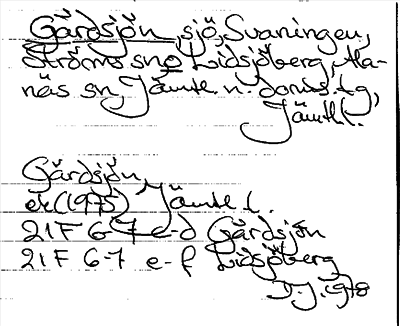 Gärdsjön, sjö, Svaningen,
Ströms sn o Lidsjöberg, Ala-
näs sn, Jämtl. n. doms. tg,
Jämtl.
Gärdsjön,
ek (1975) Jämtl l.
21F 6-7 c-d Gärdsjön
21F 6-7 e-f Lidsjöberg
1978